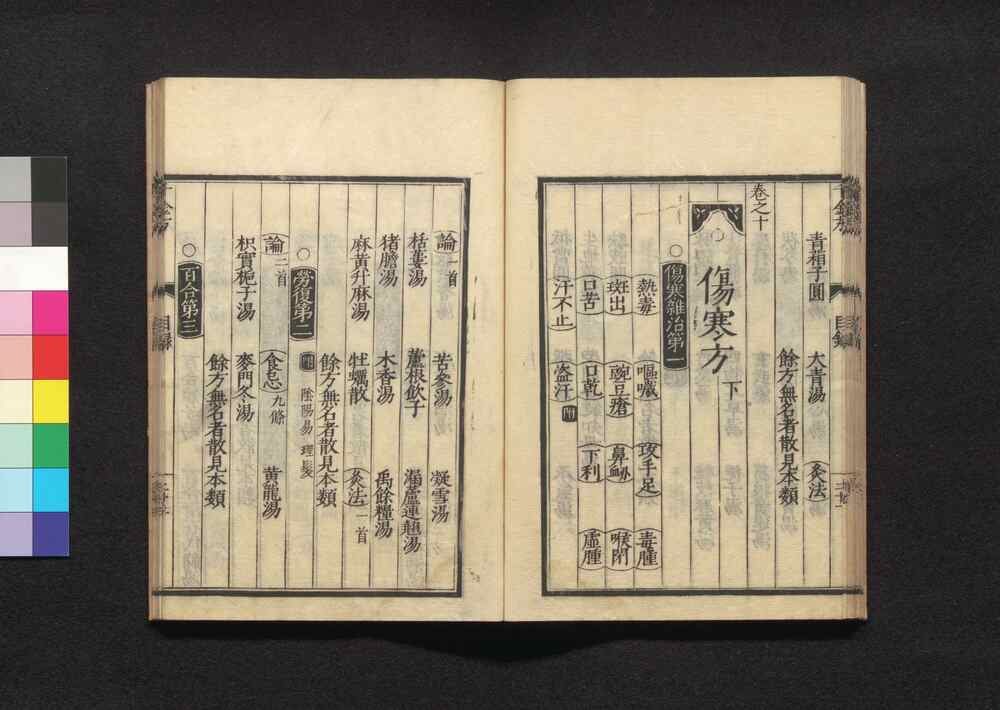 青葙子圓 大青湯 灸法
餘方無名者散見本類
卷之十
傷寒方下
傷寒雜治第一
熱毒 嘔噦 攻手足 毒腫
斑出 豌豆瘡 鼻衄 喉閉
口苦 口乾 下利 虛腫
汗不止 盗汗 附
論一首 苦參湯 凝雪湯
栝蔞湯 蘆根飲子 漏蘆連翹湯
猪膽湯 木香湯 禹餘糧湯
麻黃升麻湯 牡蠣散 灸法一首
餘方無名者散見本類
勞復第二 附 陰陽易 理髮
論二首 食忌九條 黃龍湯
枳實梔子湯 麥門冬湯
餘方無名者散見本類
百合第三